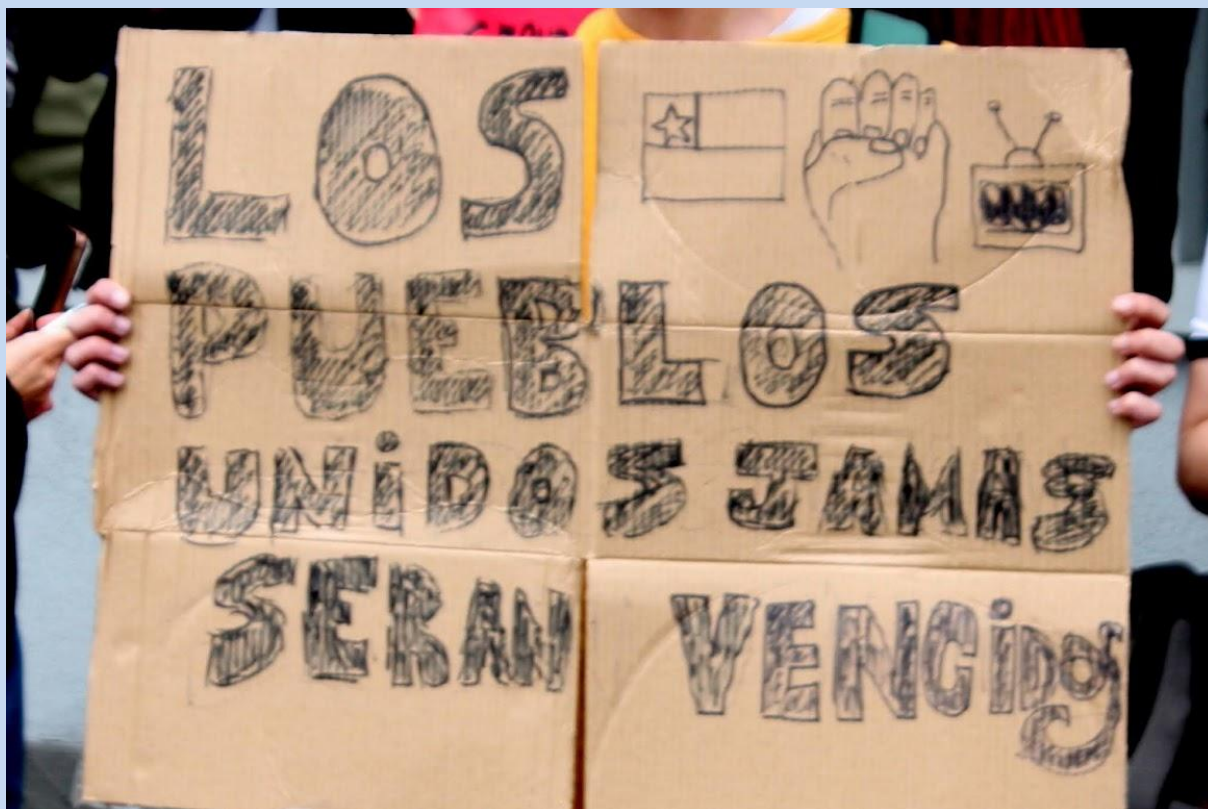 LOS
PUEBLOS
UNiDOS JAMAS
SERAN VENCiDOS